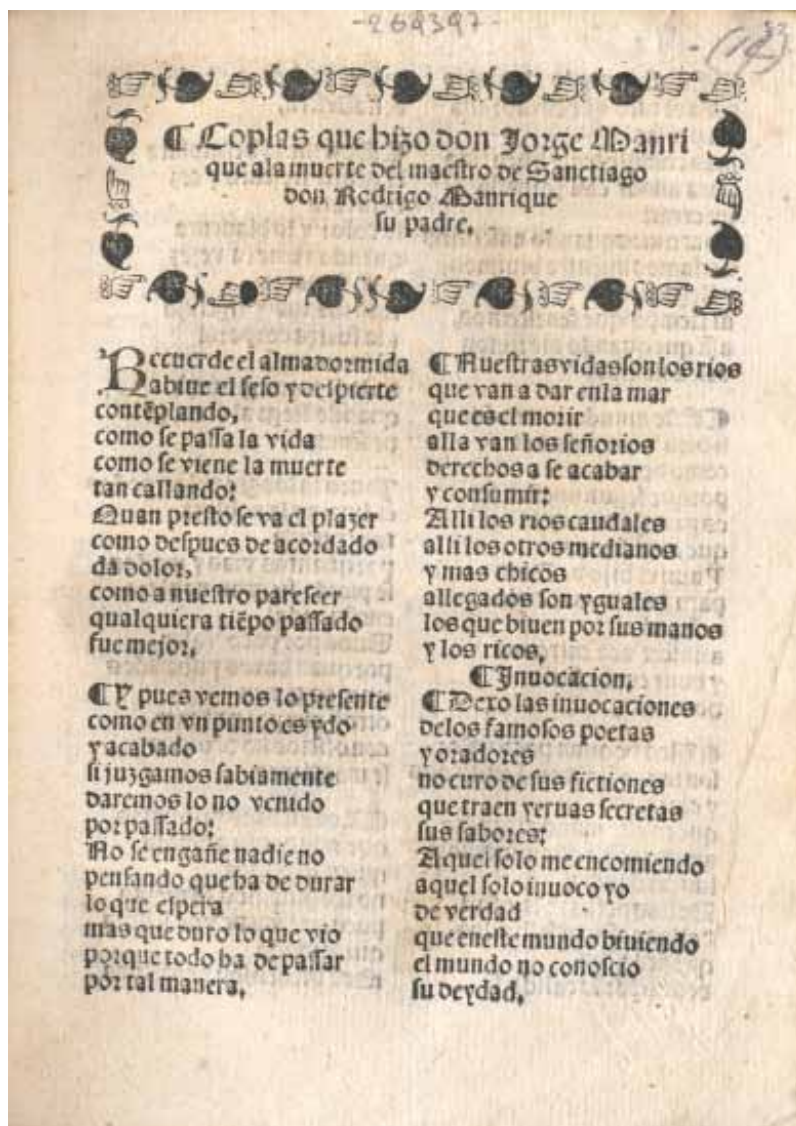 -269397-
¶ Coplas que hizo don Jorge Manri
que ala muerte del maestro de Sanctiago
don Rodrigo Manrique
su padre.
Recuerde el alma dormida
abiue el seso y despierte
contẽplando,
como se passa la vida
como se viene la muerte
tan callando:
Quan presto se va el plazer
como despues de acordado
da dolor,
como a nuestro parescer
qualquiera tiẽpo passado
fue mejor.
¶ Y pues vemos lo presente
como en vn punto es ydo
y acabado
si juzgamos sabiamente
daremos lo no venido
por passado:
No se engañe nadie no
pensando que ha de durar
lo que espera
mas que duro lo que vio
porque todo ha de passar
por tal manera.
¶ Nuestras vidas son los rios
que van a dar enla mar
que es el morir
alla van los señorios
derechos a se acabar
y consumir:
Alli los rios caudales
alli los otros medianos
y mas chicos
allegados son yguales
los que biuen por sus manos
y los ricos.
¶ Inuocacion.
¶ Dexo las inuocaciones
delos famosos poetas
y oradores
no curo de sus fictiones
que traen yeruas secretas
sus sabores:
Aquel solo me encomiendo
aquel solo inuoco yo
de verdad
que eneste mundo biuiendo
el mundo no conoscio
su deydad.